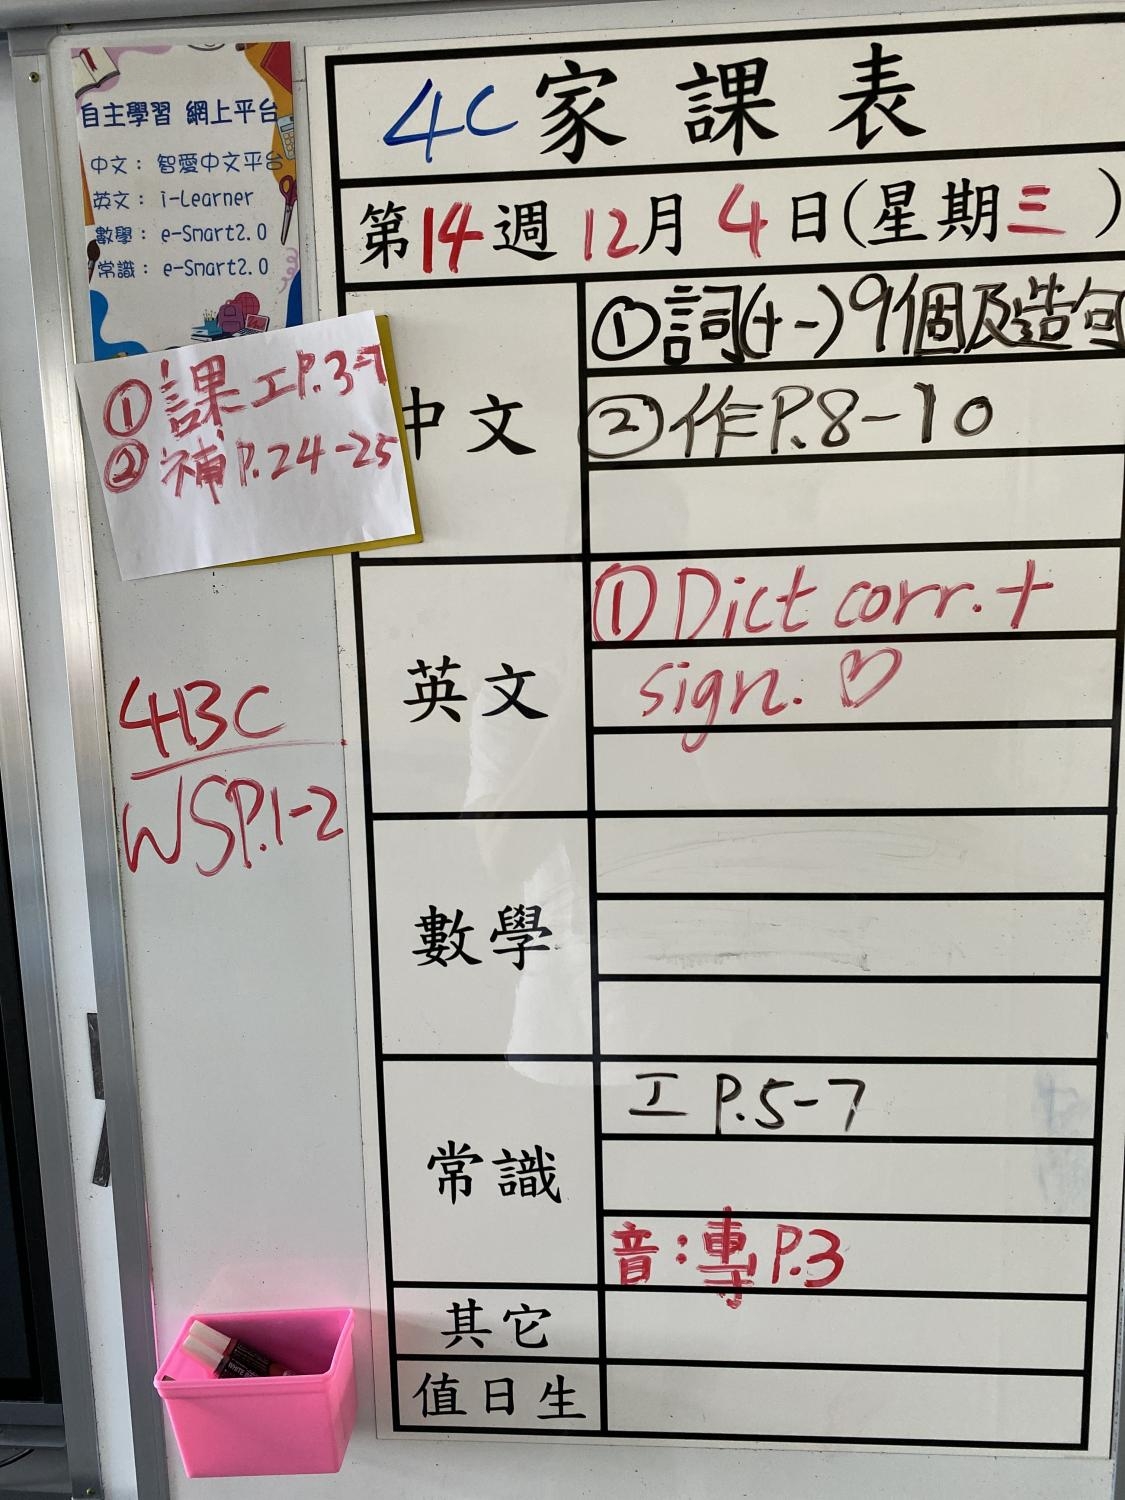 自主學習 網上平台
中文： 智愛中文平台
英文： i-Learner
數學： e-Smart2.0
常識： e-Smart2.0
① 課工P.3-7
② 補P.24-25
4BC
WSP.1-2
4C家課表
第14週12月4日(星期三)
中文
①詞(十一)9個及造句
②作P.8-10
英文
①Dict corr.+
sign.♡
數學
常識
工P.5-7
音:專P.3
其它
值日生